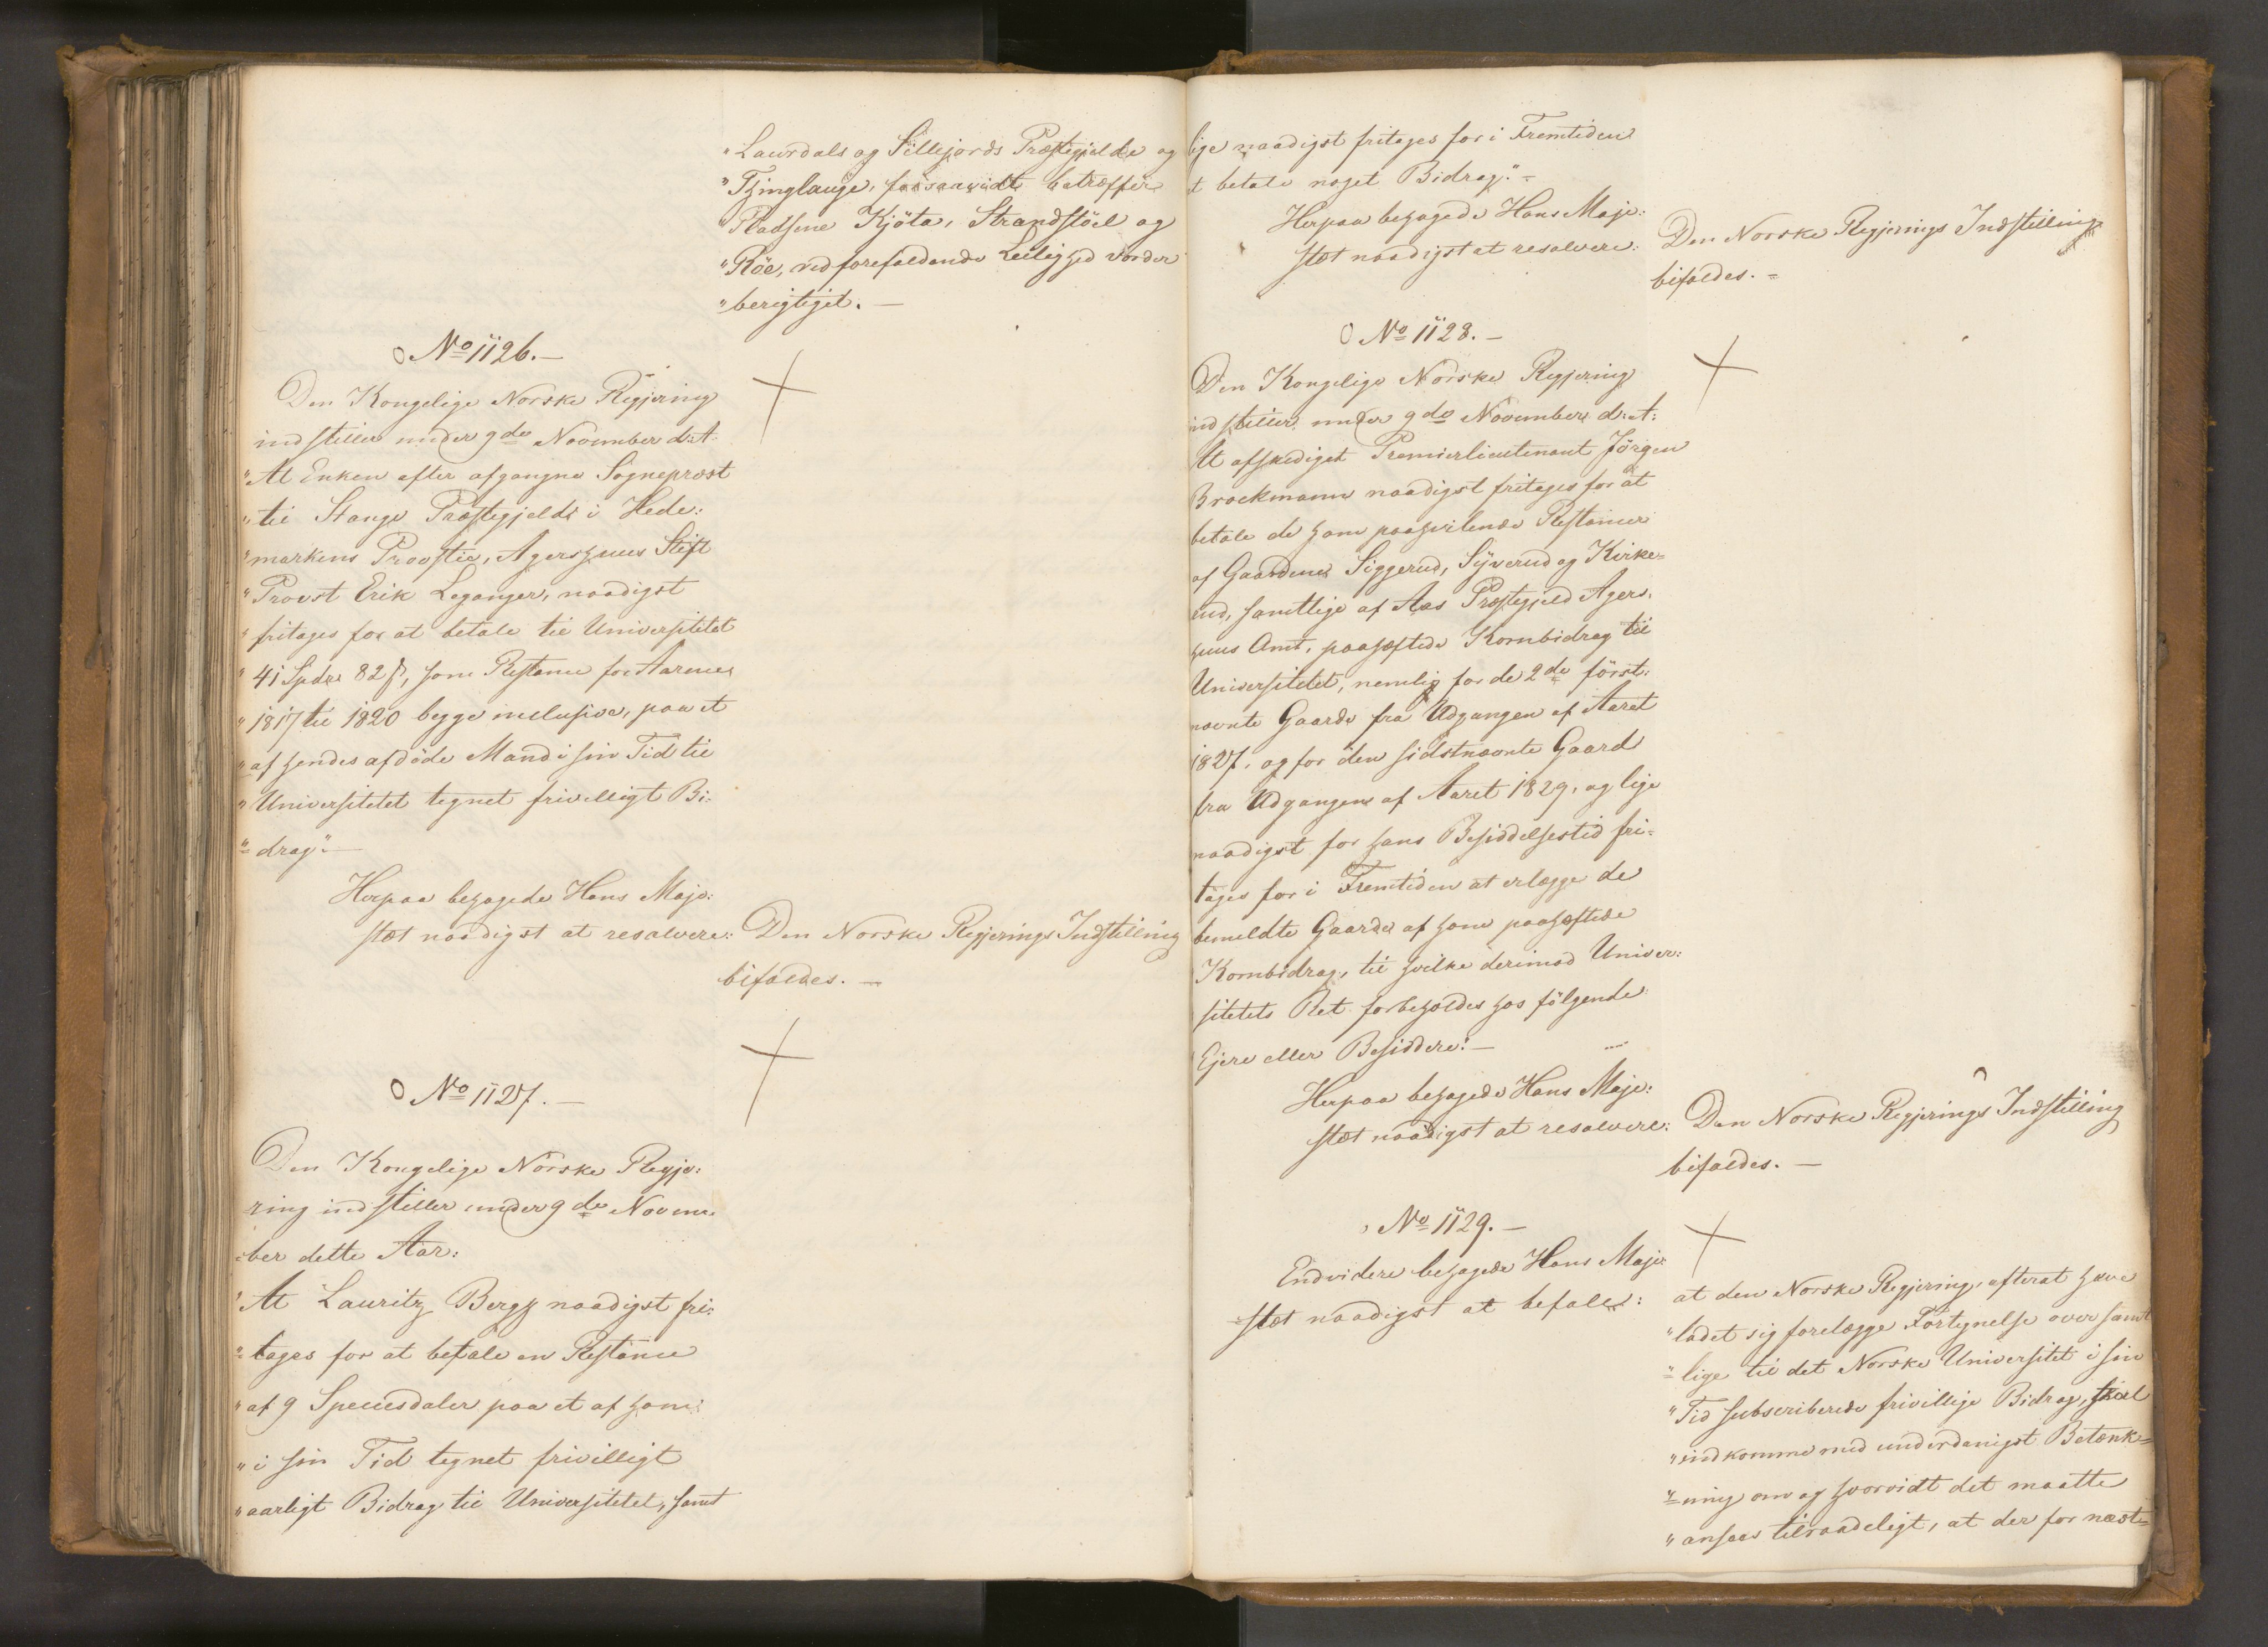 "Laurdals og Sillejords Præstegjelde og
"Thinglauge, forsaavidt betræffer
"Pladsene Kjöta, Strandstöel og
"Röe, ved forefaldende Leilighed vorder
"berigtiget. —
No 1126. —
Den Kongelige Norske Regjering
indstiller under 9de November d: A:
"At Enken efter afgangne Sogneprest
"til Stange Præstegjeld i Hede:
"markens Provstie, Agershuus Stift
"Provst Erik Leganger, naadigst
"fritages for at betale til Universitetet
"41 Spdr 82 ß, som Restance for Aarene
"1817 til 1820 begge inclusive, paa et
"af hendes afdöde Mand i sin Tid til
"Universitetet tegnet frivilligt Bi:
"drag". —
Herpaa behagede Hans Maje:
stæt naadigst at resolvere: Den Norske Regjerings Indstilling
bifaldes. —
No 1127. —
Den Kongelige Norske Regje:
ring indstiller under 9de Novem:
ber dette Aar:
"At Lauritz Bergh naadigst fri:
"tages for at betale en Restance
"af 9 Speciesdaler paa et af ham
"i sin Tid tegnet frivilligt
"aarligt Bidrag til Universitetet, samt
lige naadigst fritages for i Fremtiden
at betale noget Bidrag". =
Herpaa behagede Hans Maje:
stæt naadigst at resolvere: Den Norske Regjerings Indstilling
bifaldes. =
No 1128. —
Den Kongelige Norske Regjering
indstiller under 9de November d: A:
At afskediget Premierlieutenant Jörgen
Brockmann naadigst fritages for at
betale de ham paahvilende Restancer
af Gaardene Siggerud, Syverud og Kirke=
rud, samtlige af Aas Præstegjeld Agers,
huus Amt, paahæftede Kornbidrag til
Universitetet, nemlig for de 2de först:
nævnte Gaarde fra Udgangen af Aaret
1827, og for den sidstnævnte Gaard
fra Udgangen af Aaret 1829, og lige
naadigst for hans Besiddelsestid fri=
tages for i Fremtiden at erlægge de
bemeldte Gaarde af ham paahæftede
Kornbidrag, til hvilke derimod Univer:
sitetets Ret forbeholdes hos fölgende
Ejere eller Besiddere: —
Herpaa behagede Hans Maje:
stæt naadigst at resolvere: Den Norske Regjerings Indstilling
bifaldes. —
No 1129. —
Endvidere behagede Hans Maje:
stæt naadigst at befale: at den Norske Regjering, efterat have
"ladet sig forelægge Fortegnelse over samt
"lige til det Norske Universitet i sin
"Tid subscriberede frivillige Bidrag, skal
"indkomme med underdanigst Betænk=
"ning om og hvorvidt det maatte
"ansees tilraadeligt, at der for næst=